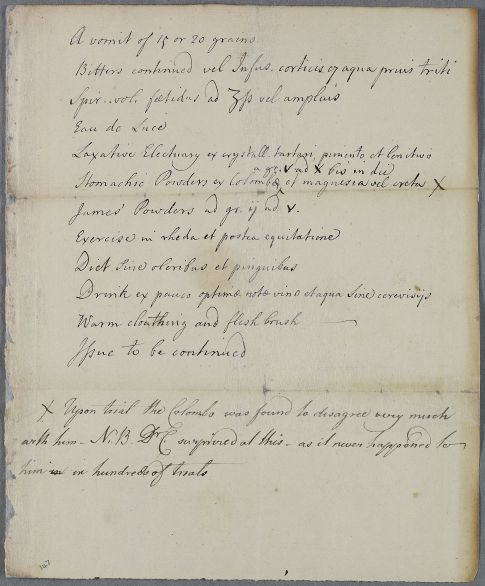 A vomit of 15 or 20 grains
Bitters continued vel Infus. corticis ex aqua prius triti
Spir. vol. fœtidus ad ʒſs vel amplius
Eau de Luce
Laxative Electuary ex crystall. tartari, pimento, et lenitivo
a gr. v ad x bis in die
Stomachic Powders ex Colombæ et magnesia vel creta X
James' Powders ad gr. ij ad v.
Exercise in rheda et postea equitatione
Diet sine oleribus et pinguibus
Drink ex pauco optimæ notæ vino et aqua sine cerevisijs
Warm cloathing and flesh brush
Issue to be continued
X Upon trial the Colombo was found to disagree very much
with him - N.B. Dr C surprised at this - as it never happened to
him in hundreds of trials
147